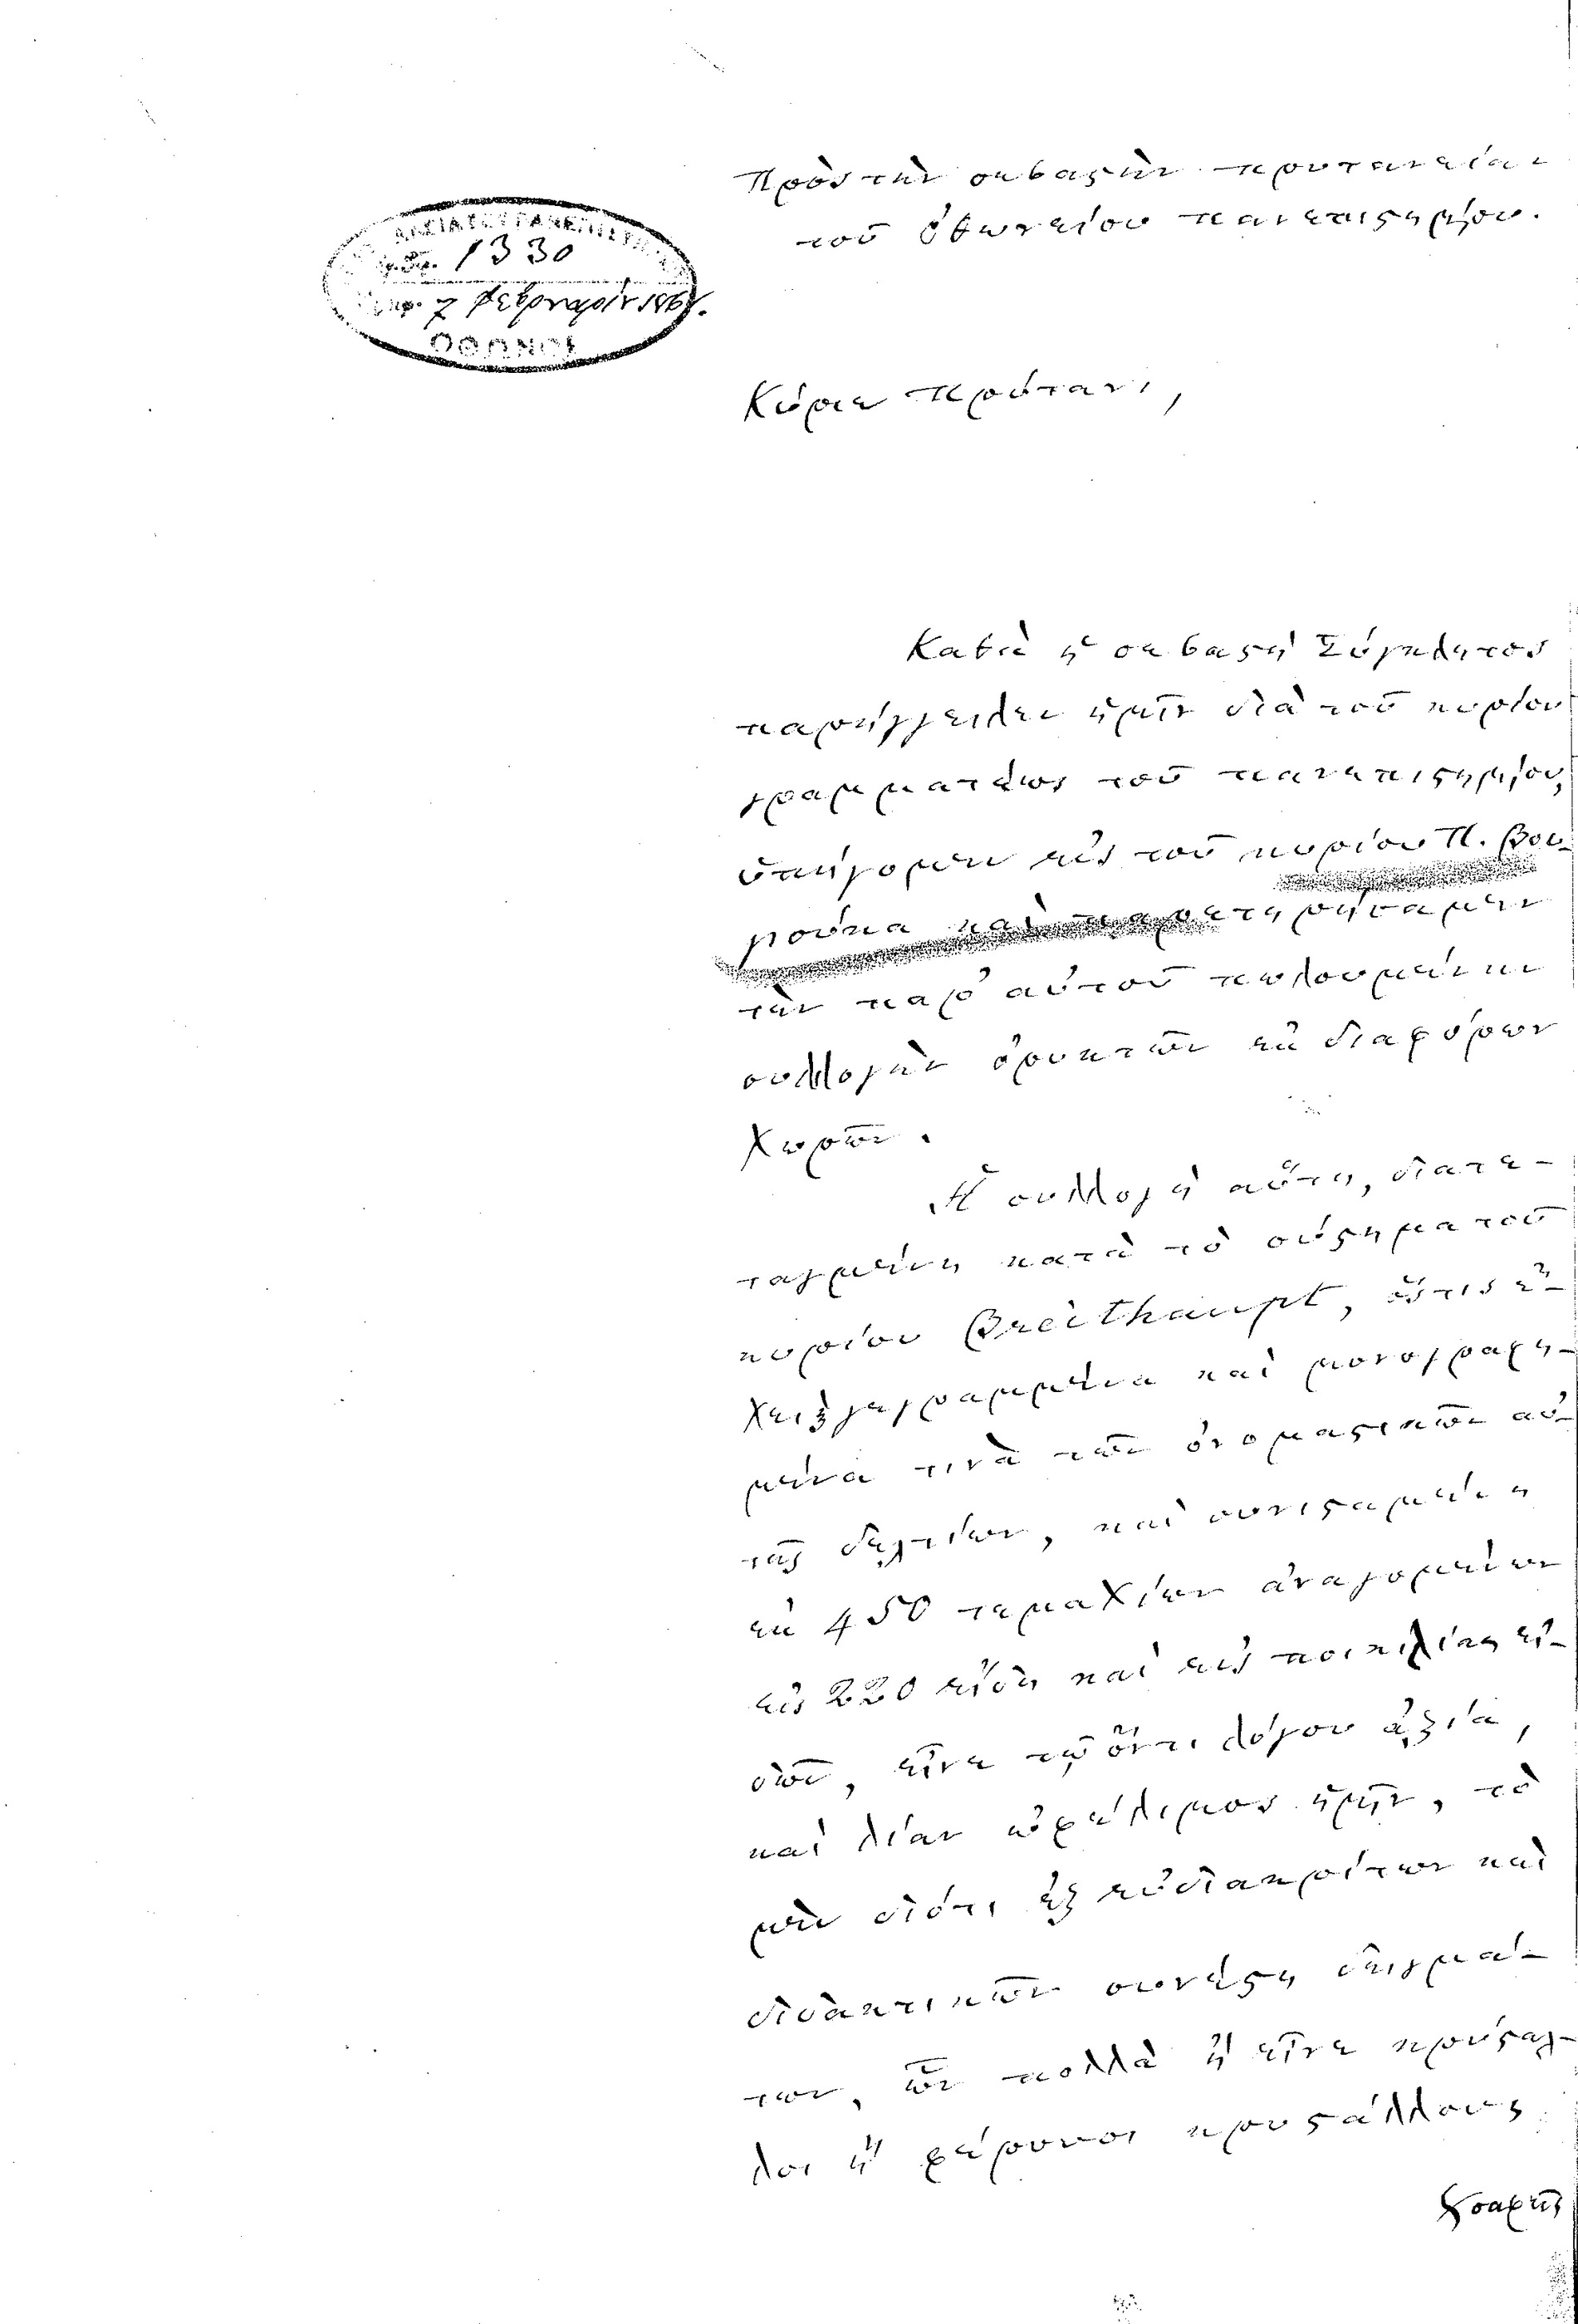 Πρὸς τὴν σεβαστὴν πρυτανείαν
τοῦ Ὀθωνείου πανεπιστημίου.
1330
7 Φεβρουαρίου
ΟΘΩΝΟΣ
Κύριε Πρύτανι,
Καθὰ ἡ σεβαστὴ Σύγκλητος
παρήγγειλεν ἡμῖν διὰ τοῦ κυρίου
γραμματέως τοῦ πανεπιστημίου,
ὑπήγομεν εἰς τοῦ κυρίου Π. Βου-
γούκα καὶ παρετηρήσαμεν
τὴν παρ' αὐτοῦ πωλουμένην
συλλογὴν ὀρυκτῶν ἐκ διαφόρων
χωρῶν.
Ἡ συλλογὴ αὕτη, διατε-
ταγμένη κατὰ τὸ σύστημα τοῦ
κυρίου Breithaupt, ὅστις ἔ-
χει ξγεγραμμένα καὶ μονογραφη-
μένα τινὰ τῶν ὀνομαστικῶν αὐ-
τῆς δελτίων, καὶ συνισταμένη
ἐκ 450 τεμαχίων ἀναγομένων
εἰς 220 εἴδη καὶ εἰς ποικιλίας εἰ-
δῶν, εἶνε τῷ ὄντι λόγου ἀξία,
καὶ λίαν ὠφέλιμος ἡμῖν, τὸ
μὲν διότι ἐξ εὐδιακρίτων καὶ
διδακτικῶν συνέστη δειγμά-
των, ὧν πολλὰ ἢ εἶνε κρύσταλ-
λοι ἢ φέρουσι κρυστάλλους
σαφεῖς